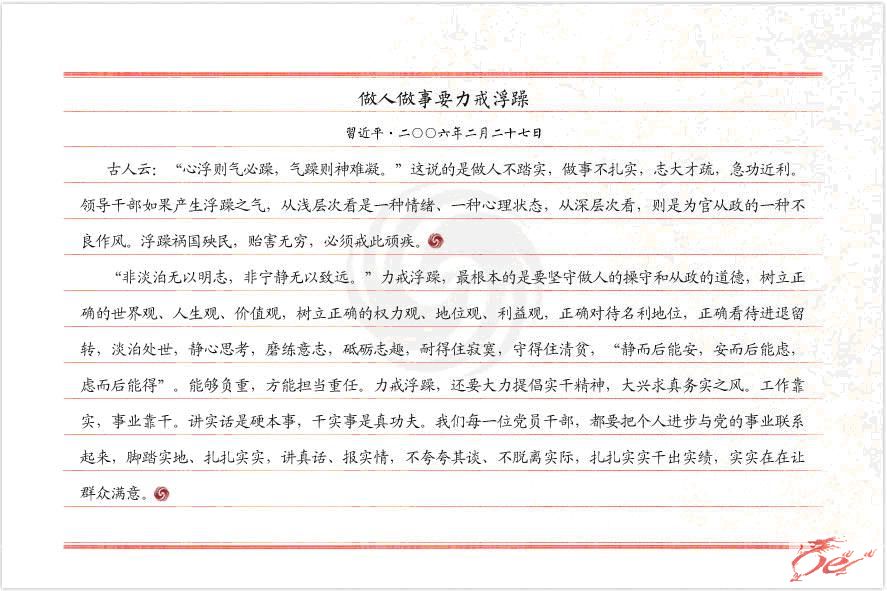 做人做事要力戒浮躁
習近平·二〇〇六年二月二十七日
古人云：“心浮则气必躁，气躁则神难凝。”这说的是做人不踏实，做事不扎实，志大才疏，急功近利。
领导干部如果产生浮躁之气，从浅层次看是一种情绪、一种心理状态，从深层次看，则是为官从政的一种不
良作风。浮躁祸国殃民，贻害无穷，必须戒此顽疾。
“非淡泊无以明志，非宁静无以致远。”力戒浮躁，最根本的是要坚守做人的操守和从政的道德，树立正
确的世界观、人生观、价值观，树立正确的权力观、地位观、利益观，正确对待名利地位，正确看待进退留
转，淡泊处世，静心思考，磨练意志，砥砺志趣，耐得住寂寞，守得住清贫，“静而后能安，安而后能虑，
虑而后能得”。能够负重，方能担当重任。力戒浮躁，还要大力提倡实干精神，大兴求真务实之风。工作靠
实，事业靠干。讲实话是硬本事，干实事是真功夫。我们每一位党员干部，都要把个人进步与党的事业联系
起来，脚踏实地、扎扎实实，讲真话、报实情，不夸夸其谈、不脱离实际，扎扎实实干出实绩，实实在在让
群众满意。